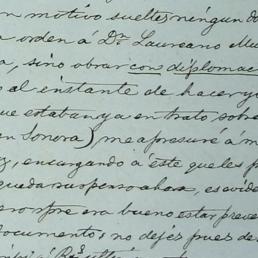 n motivo sueltes ningun do
a orden á Dn. Laureano Mu
a, sino obrar con diplomac
o al instante de hacer
ue estaban ya en trato sobre
en Sonora) me apresuré á m
z, encargando á éste que les p
queda suspenso ahora, es evide
ero spre era bueno estar preve
documentos no dejes pues de